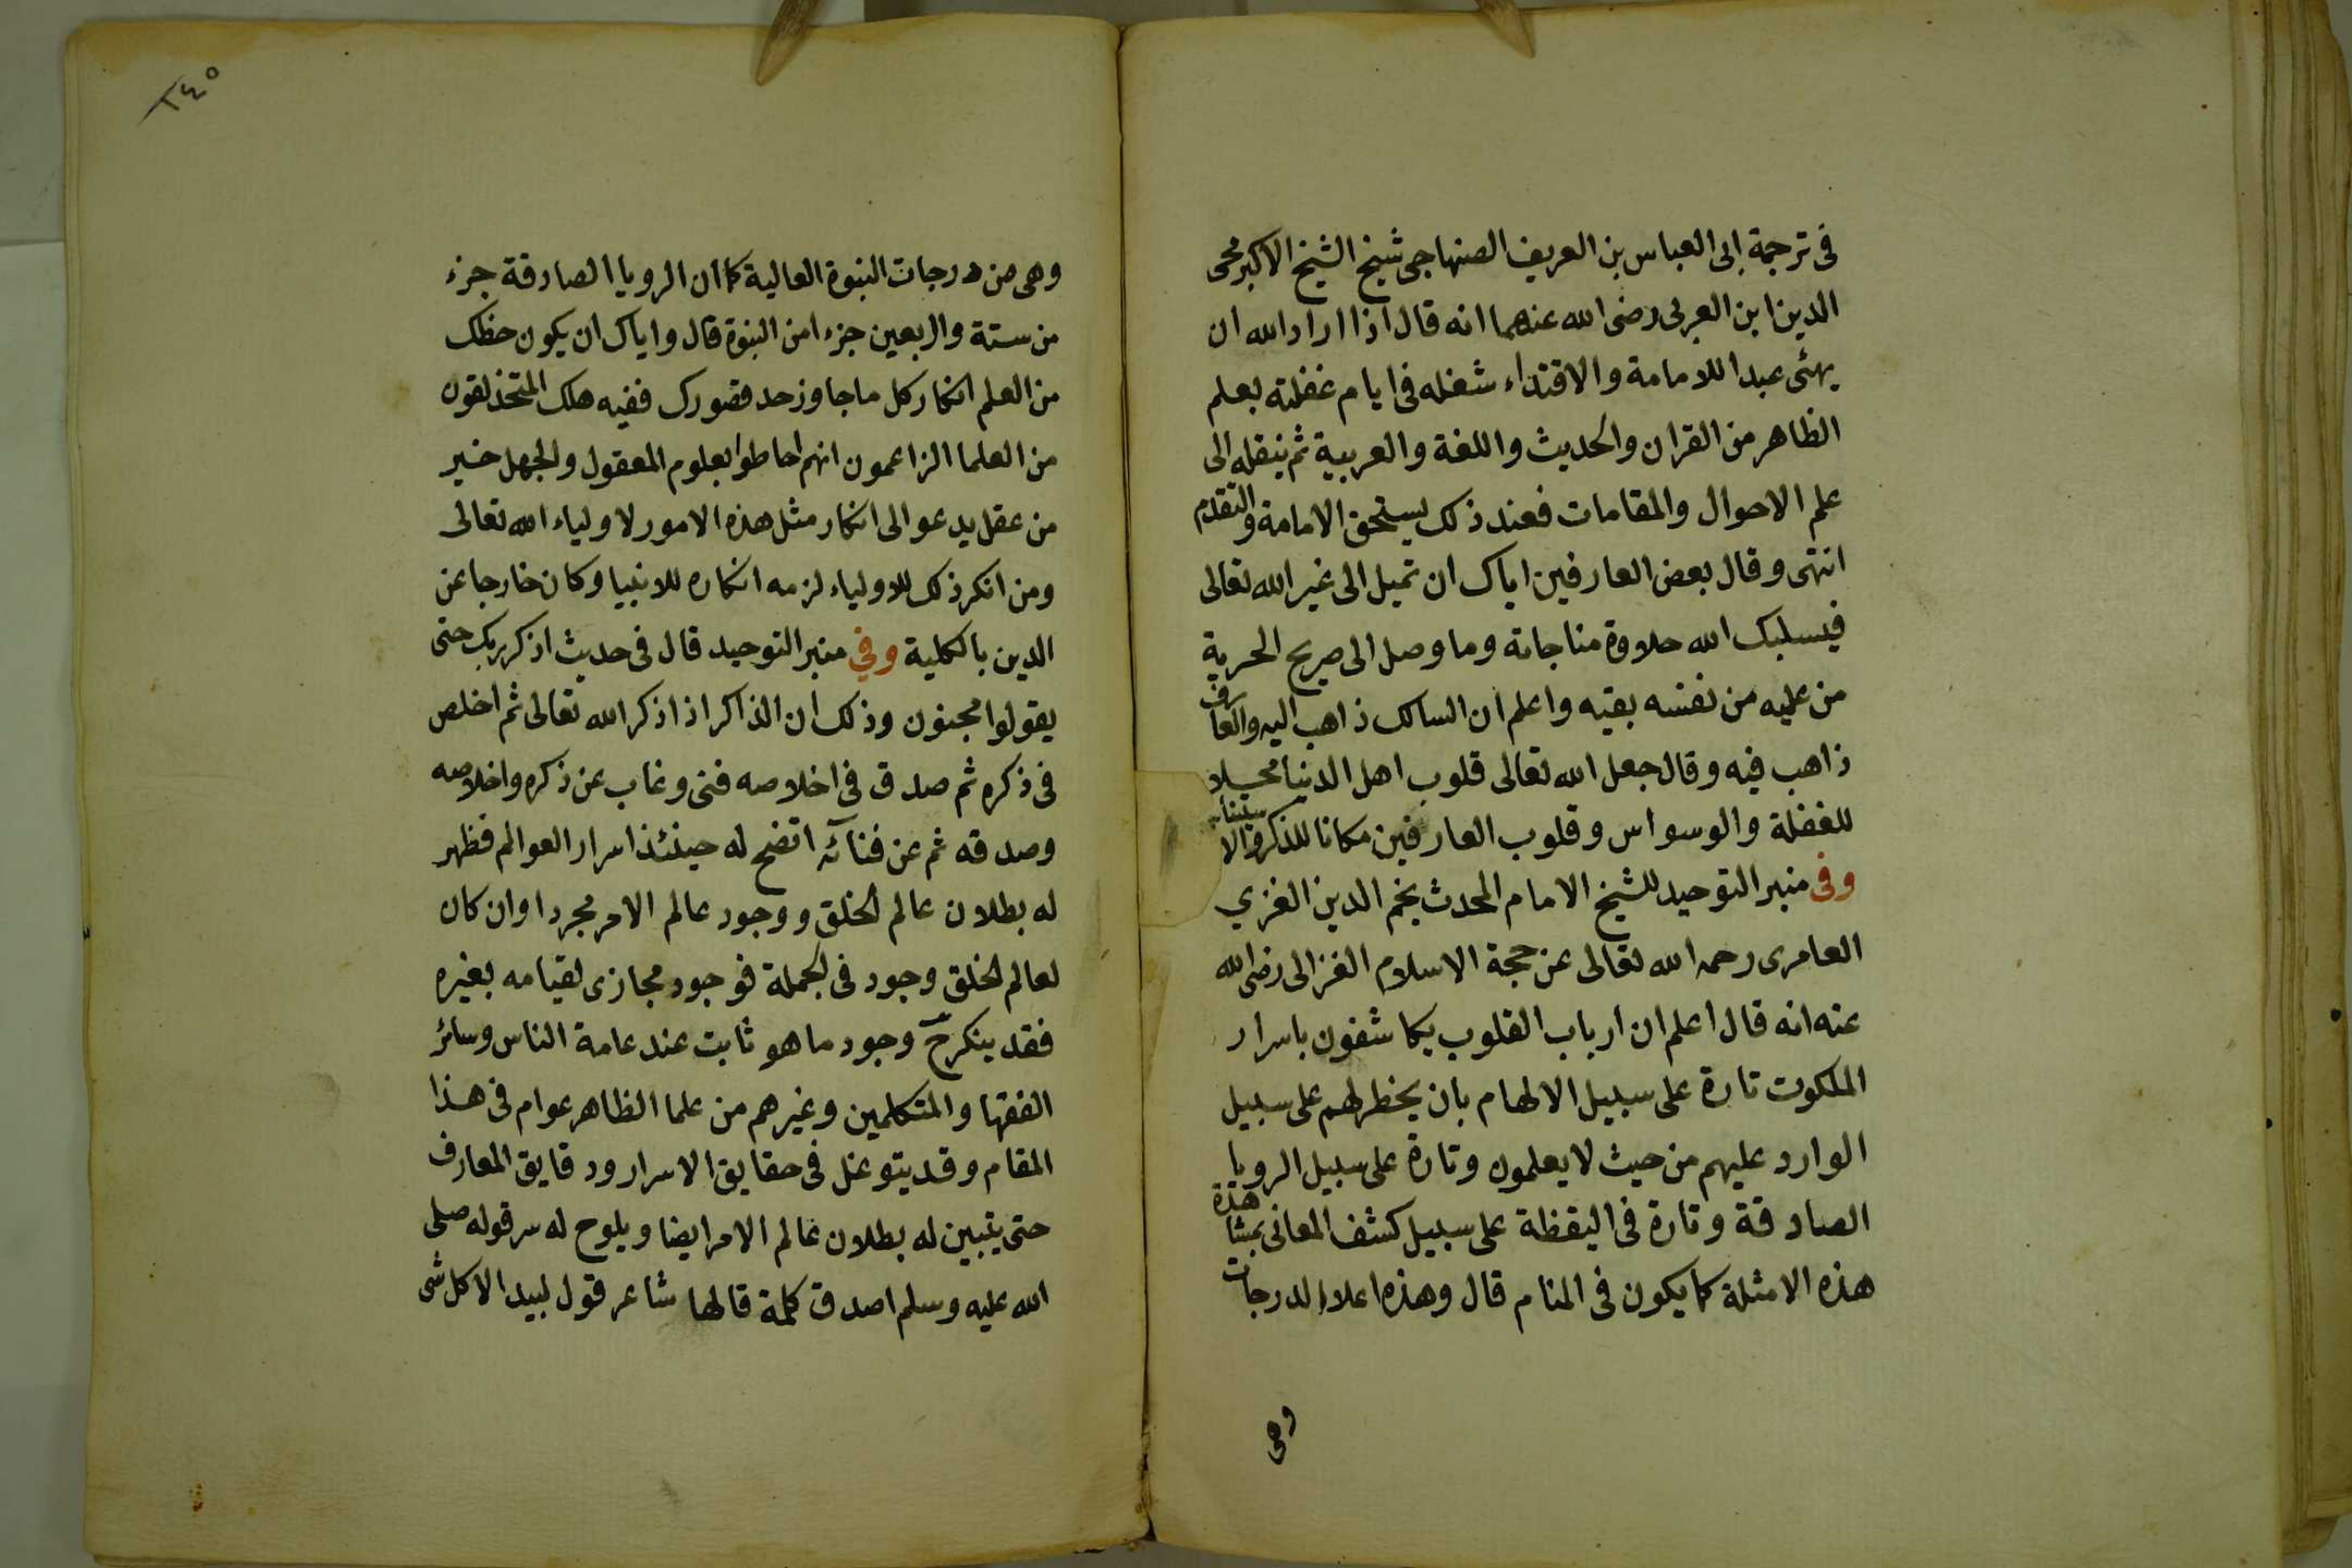 فى ترجمة ابى العباس بن العريف الصنهاجى شيخ الشيخ الاكبر محى
الدين ابن العربى رضى الله عنهما انه قال اذا اراد الله ان
يهئى عبدا للامامة والاقتداء شغله فى ايام غفلته بعلم
الظاهر من القران والحديث واللغة والعربية ثم ينقله الى
علم الاحوال والمقامات فعند ذلك يستحق الامامة والتقدم
انتهى وقال بعض العارفين اياك ان تميل الى غير الله تعالى
فيسلبك الله حلاوة مناجاته وما وصل الى صريح الحرية
من عليه من نفسه بقيه واعلم ان السالك ذاهب اليه والعارف
ذاهب فيه وقال جعل الله تعالى قلوب اهل الدنيا محلا
للغفلة والوسواس وقلوب العارفين مكانا للذكر والاستيناس
وفى منبر التوحيد للشيخ الامام المحدث نجم الدين الغزي
العامرى رحمه الله تعالى عن حجة الاسلام الغزالى رضى الله
عنه انه قال اعلم ان ارباب القلوب يكاشفون باسرار
الملكوت تارة على سبيل الالهام بان يخطر لهم على سبيل
الوارد عليهم من حيث لا يعلمون وتارة على سبيل الرويا
الصادقة وتارة فى اليقظة على سبيل كشف المعانى بمشاهدة
هذه الامثلة كما يكون فى المنام قال وهذه اعلا الدرجات
وهى
٢٤٥
وهى من درجات النبوة العالية كما ان الرويا الصادقة جزء
من ستة واربعين جزءا من النبوة قال واياك ان يكون حظك
من العلم انكار كل ما جاوز حد قصورك ففيه هلك المتحذلقون
من العلما الزاعمون انهم احاطوا بعلوم المعقول والجهل خير
من عقل يدعو الى انكار مثل هذه الامور لاولياء الله تعالى
ومن انكر ذلك للاولياء لزمه انكاره للانبيا وكان خارجا عن
الدين بالكلية وفي منبر التوحيد قال فى حديث اذكر ربك حتى
يقولوا مجنون وذلك ان الذاكر اذا ذكر الله تعالى ثم اخلص
فى ذكره ثم صدق فى اخلاصه فنى وغاب عن ذكره واخلاصه
وصدقه ثم عن فنائه اتضح له حينئذ اسرار العوالم فظهر
له بطلان عالم الخلق ووجود عالم الامر مجردا وان كان
لعالم الخلق وجود فى الجملة فوجود مجازى لقيامه بغيره
فقد ينكر ح وجود ما هو ثابت عند عامة الناس وسائر
الفقها والمتكلمين وغيرهم من علما الظاهر عوام فى هذا
المقام وقد يتوغل فى حقايق الاسرار ودقايق المعارف
حتى يتبين له بطلان عالم الامر ايضا ويلوح له سر قوله صلى
الله عليه وسلم اصدق كلمة قالها شاعر قول لبيد الا كل شى